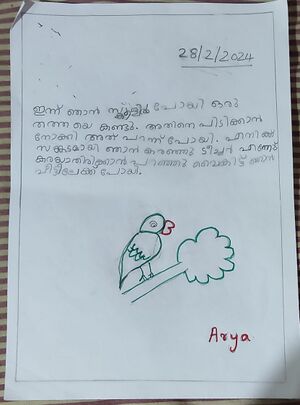 28/2/2024
ഇന്ന് ഞാൻ സ്കൂളിൽ പോയി ഒരു
തത്ത യെ കണ്ടു. അതിനെ പിടിക്കാൻ
നോക്കി അത് പറന്ന് പോയി. എനിക്ക്
സങ്കടമായി ഞാൻ കരഞ്ഞു ടീച്ചർ എന്നോട്
കരയാതിരിക്കാൻ പറഞ്ഞു വൈകിട്ട് ഞാൻ
വീട്ടിലേക്ക് പോയി.
Arya